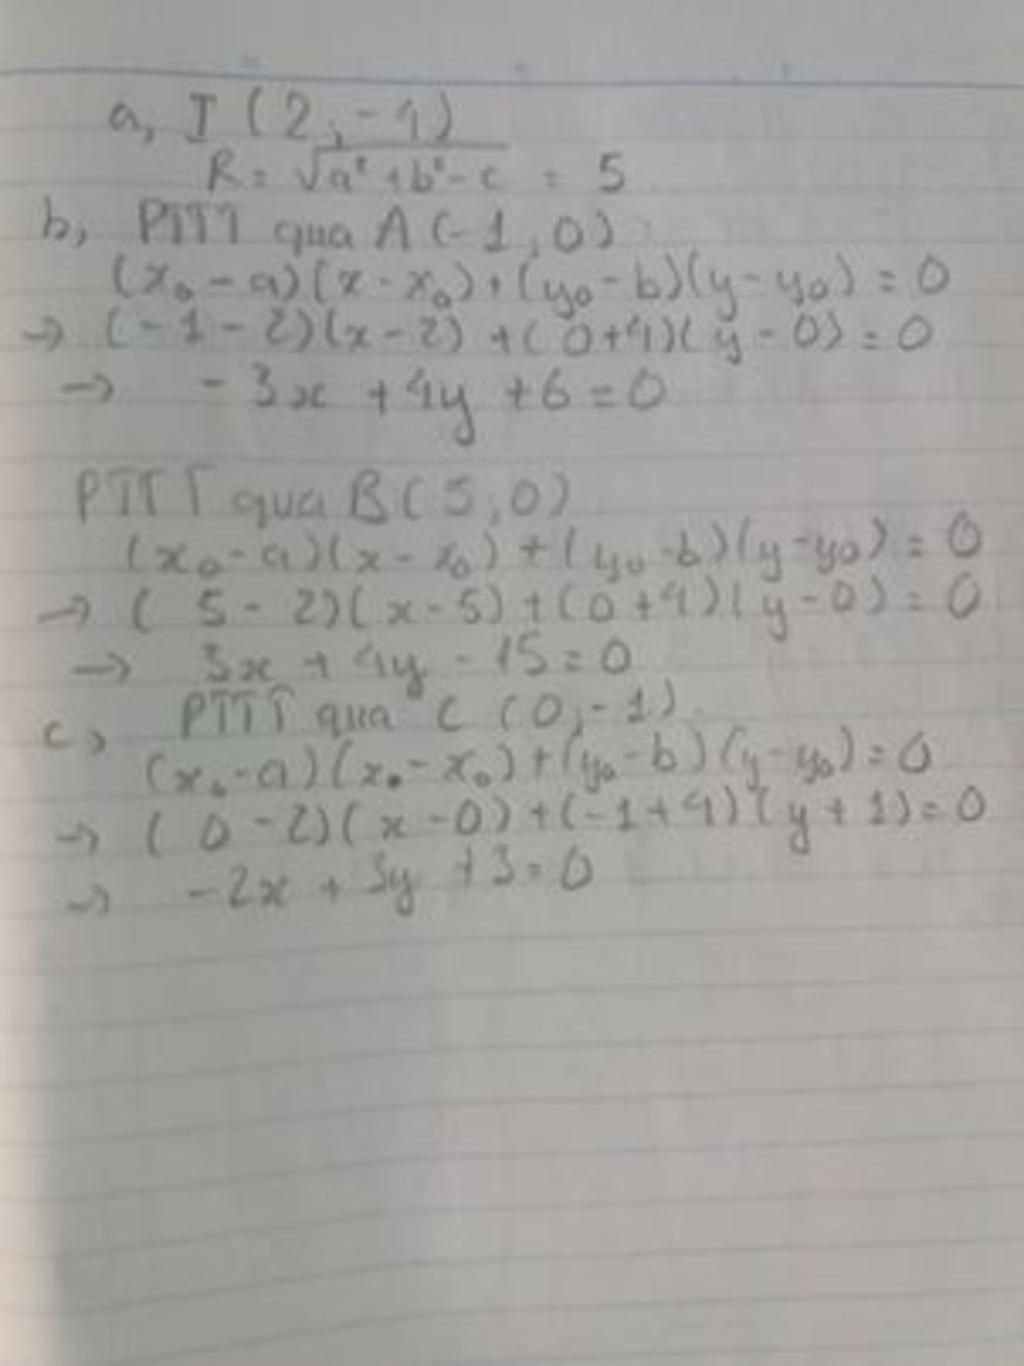 a, I (2, -4)
R = √a²+b²-c = 5
b, PTTT qua A (-1, 0)
(x₀ - a)(x - x₀) + (y₀ - b)(y - y₀) = 0
→ (-1 - 2)(x - 2) + (0+4)(y - 0) = 0
→ - 3x + 4y + 6 = 0
PTTT qua B (5, 0)
(x₀ - a)(x - x₀) + (y₀ - b)(y - y₀) = 0
→ (5 - 2)(x - 5) + (0 + 4)(y - 0) = 0
→ 3x + 4y - 15 = 0
c, PTTT qua C (0, -1)
(x₀ - a)(x₀ - x₀) + (y₀ - b)(y - y₀) = 0
→ (0 - 2)(x - 0) + (-1 + 4)(y + 1) = 0
→ -2x + 3y + 3 = 0